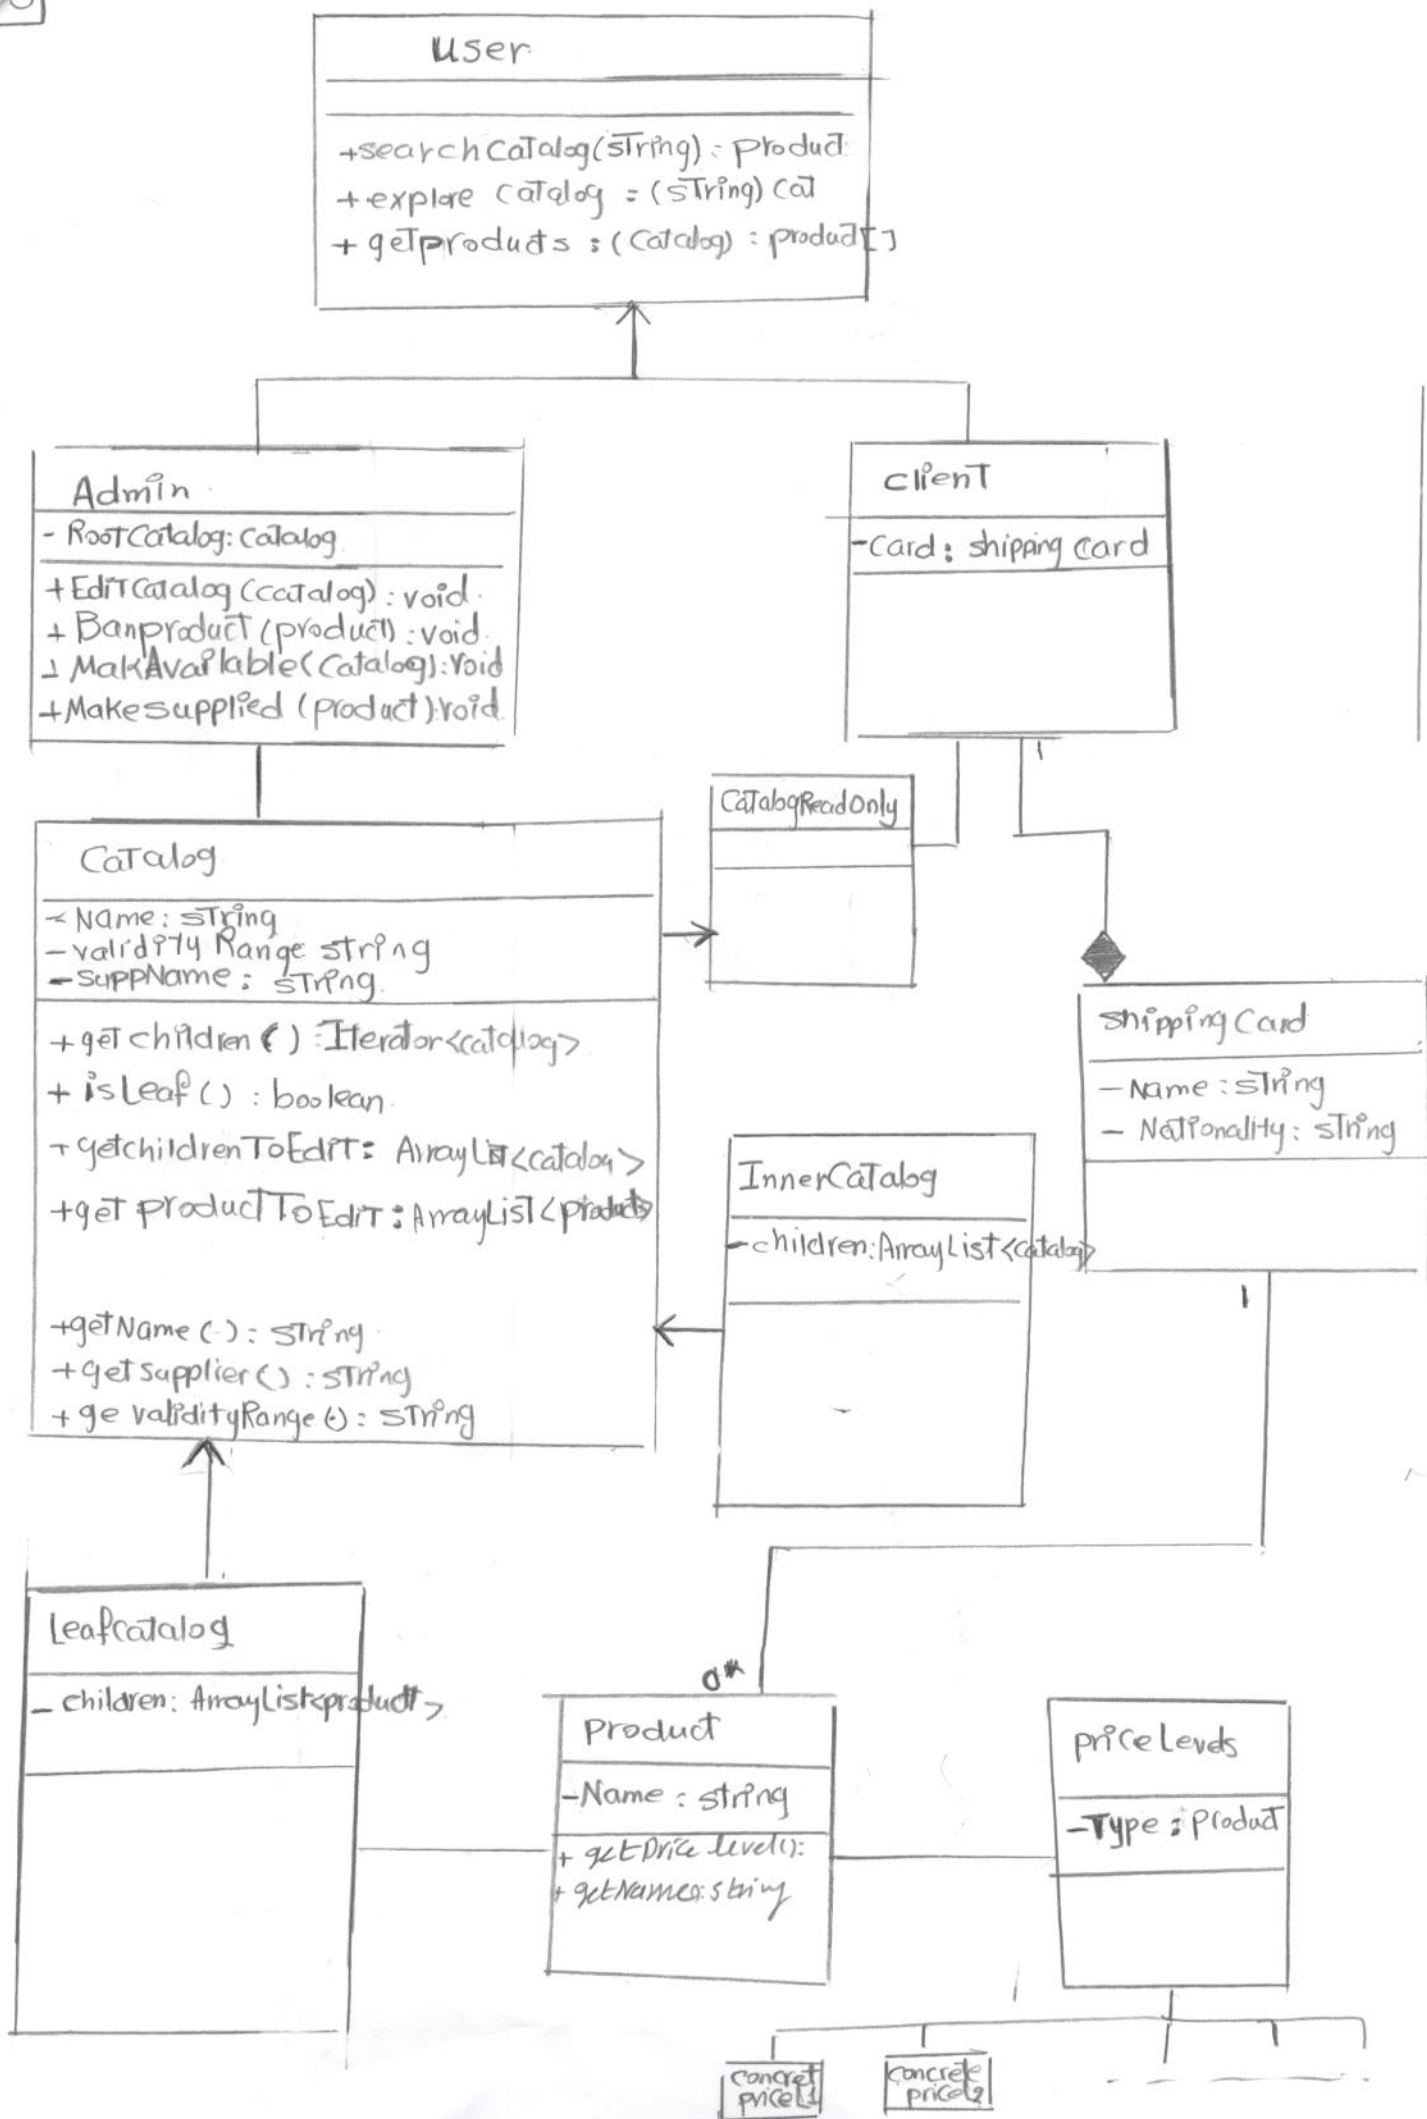 User
+searchCatalog(string): product
+explore catalog : (string) cat
+ getproducts : (Catalog) : product[]
Admin
- RootCatalog: catalog
+EditCatalog(catalog): void
+ Banproduct (product): void
+ MakAvailable(Catalog): void
+Makesupplied (product): void
client
-Card: shipping card
CatalogReadOnly
Catalog
- Name: string
- validity Range string
- suppName: string
+ getchildren ( ) : Iterator<catalog>
+ isLeaf ( ) : boolean
+ getchildrenToEdit: ArrayList<catalog>
+get productToEdit: ArrayList<product>
+getName ( ): string
+getsupplier() : string
+ ge validityRange(): string
1
shippingCard
- Name: string
- Nationality: string
InnerCatalog
- children: ArrayList<catalog>
1
Leafcatalog
- children: ArrayList<product>
0*
product
-Name : string
+ getprice level():
+ getName(): string
priceLevels
-Type : product
concret
priceL1
concrete
priceL2